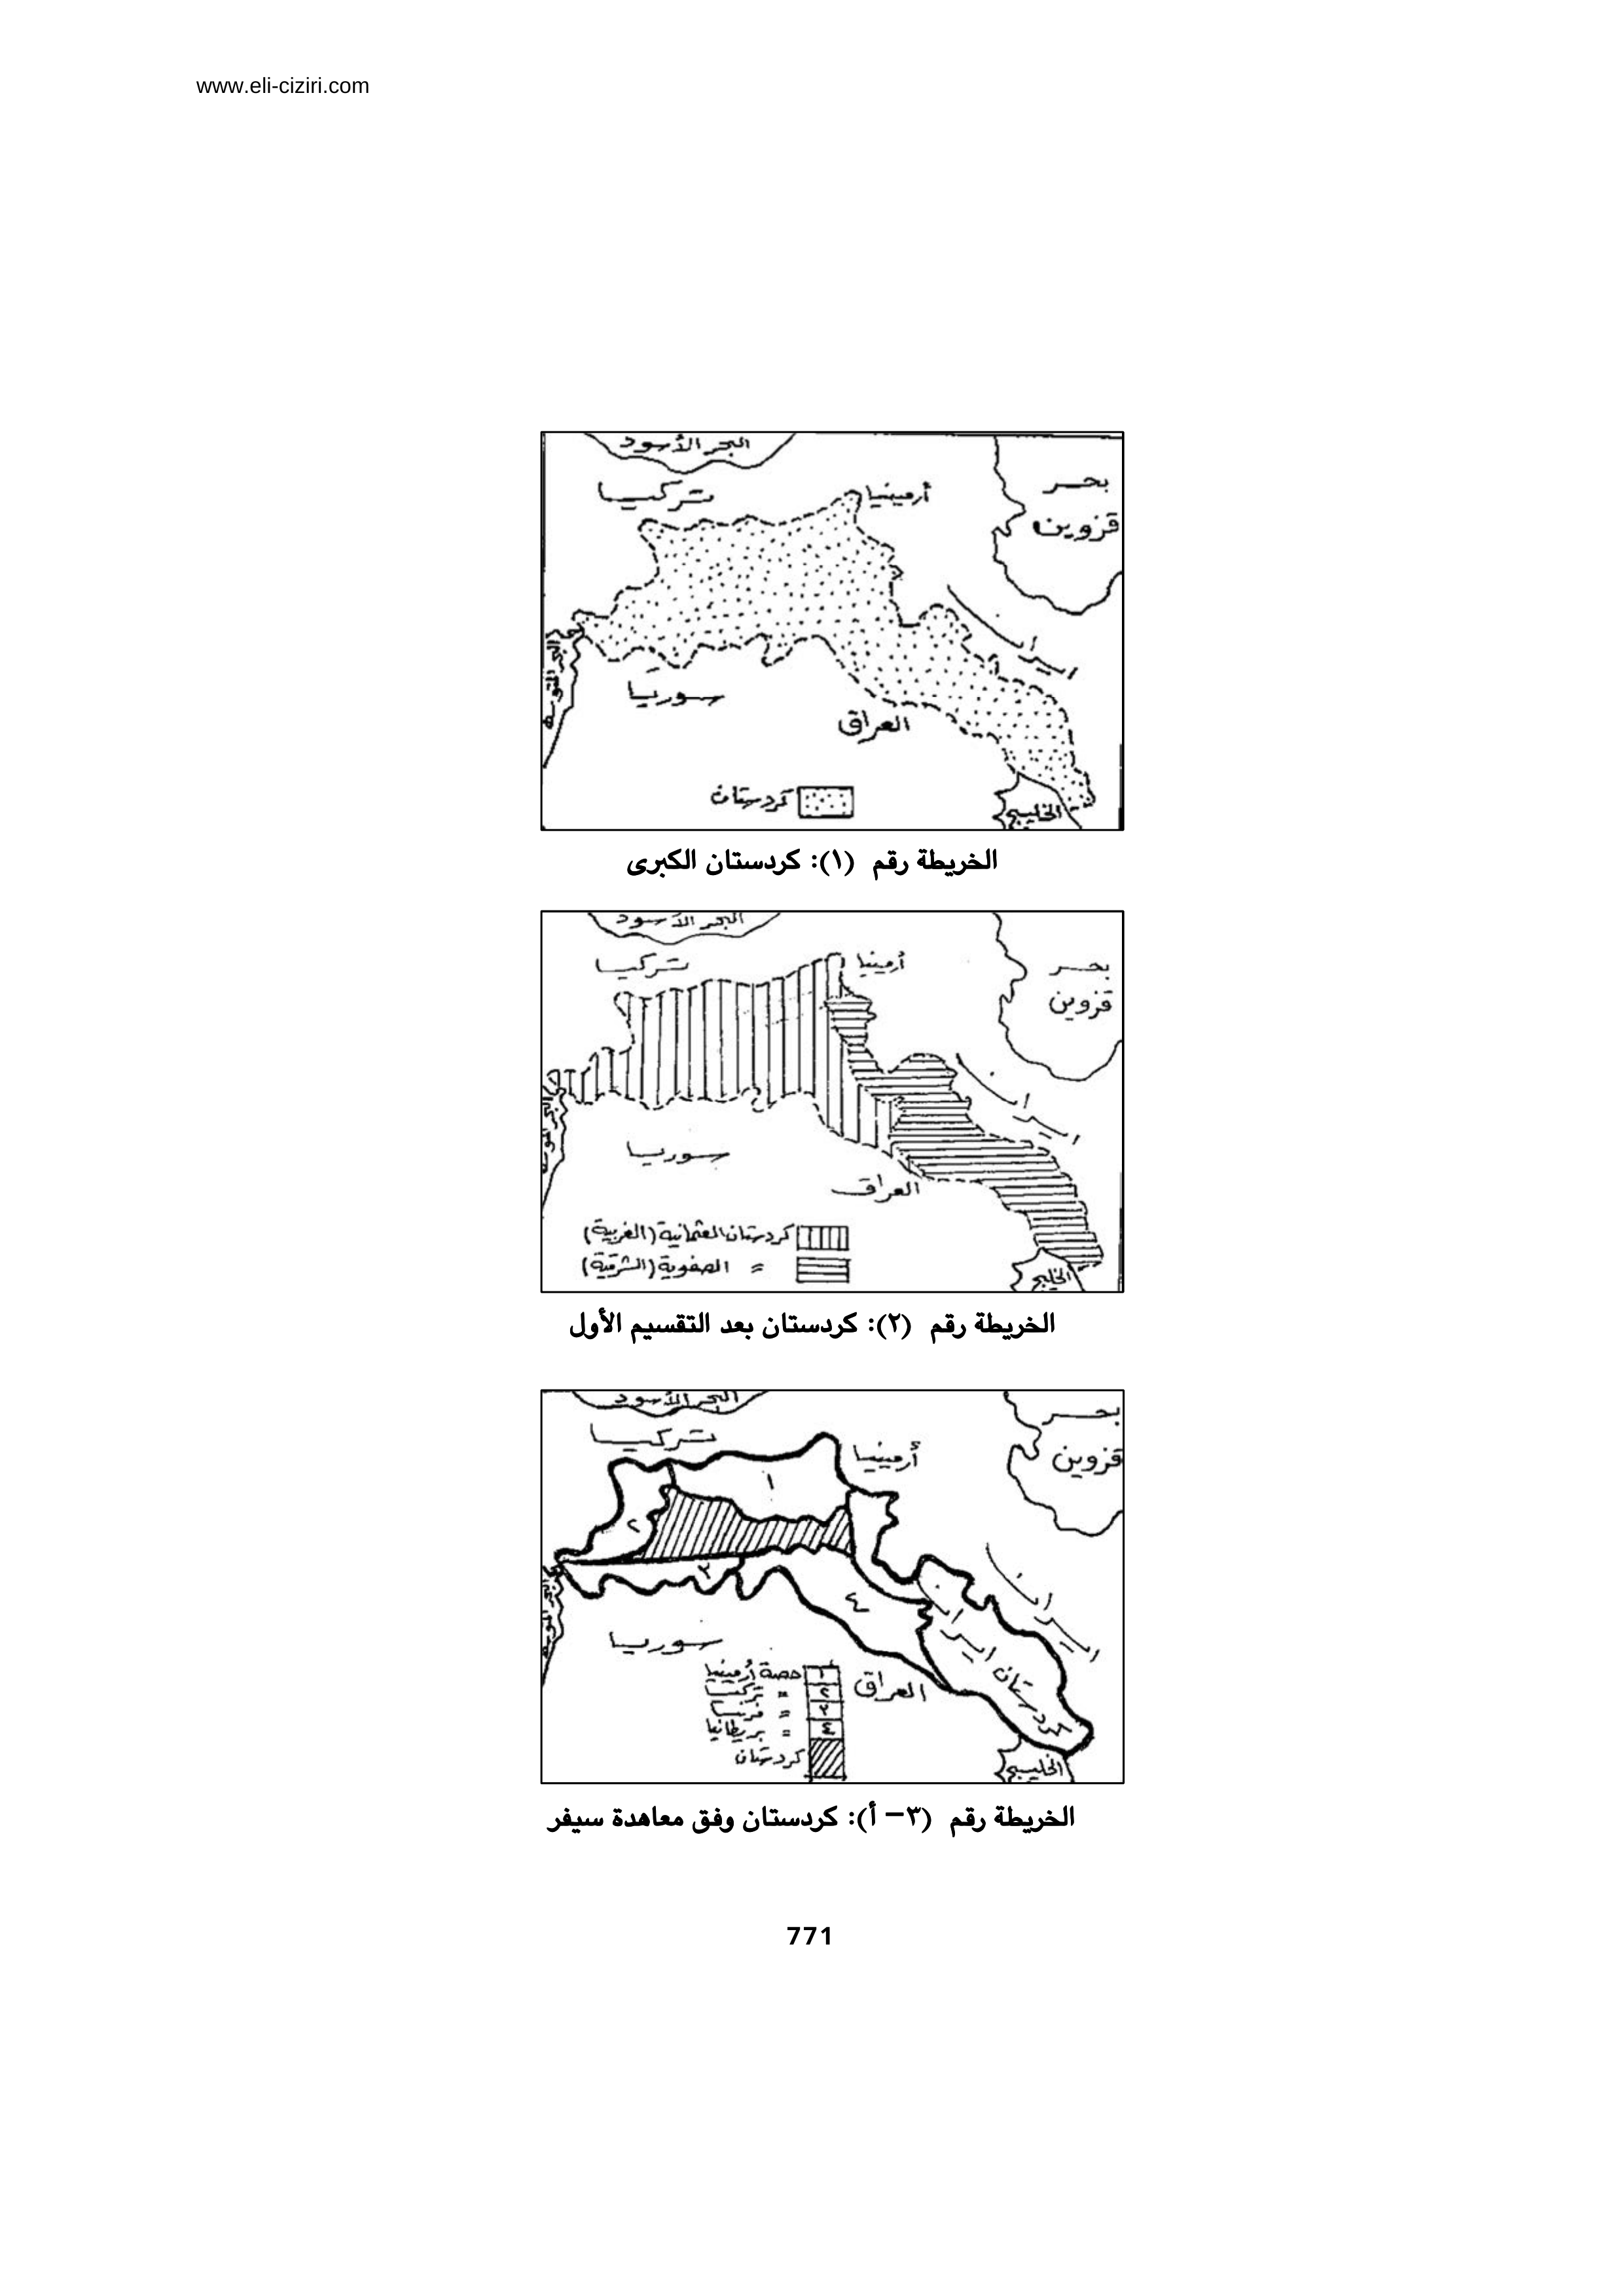 www.eli-ciziri.com
البحر الأسود
تركيا
أرمينيا
بحر
قزوين
ايران
سوريا
العراق
كردستان
الخليج
الخريطة رقم (١): كردستان الكبرى
البحر الأسود
تركيا
أرمينيا
بحر
قزوين
ايران
سوريا
العراق
كردستان العثمانية (الغربية)
= الصفوية (الشرقية)
الخليج
الخريطة رقم (٢): كردستان بعد التقسيم الأول
البحر الأسود
تركيا
أرمينيا
بحر
قزوين
١
٢
٣
٤
ايران
كردستان ايران
سوريا
العراق
١ حصة أرمينيا
٢ = تركيا
٣ = فرنسا
٤ = بريطانيا
كردستان
الخليج
الخريطة رقم (٣– أ): كردستان وفق معاهدة سيفر
771